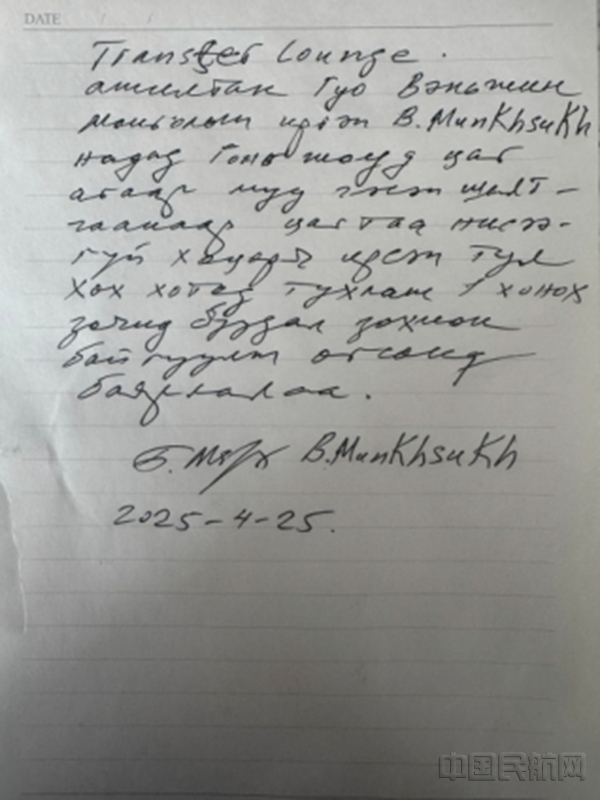 DATE / /
Transfer Lounge.
ажилтан Гуо Вэньжин
монголын иргэн B.Munkhsukh
надад Гонь цаг
агаар муу гэсэн шалт-
гаанаар цагтаа нисэ-
гүй хоцорч ирсэн тул
Хөх хотод тухлаж 1 хонох
зочид буудал зохион
байгуулж өгсөнд
баярлалаа.
B.Munkhsukh
2025-4-25.
中国民航网